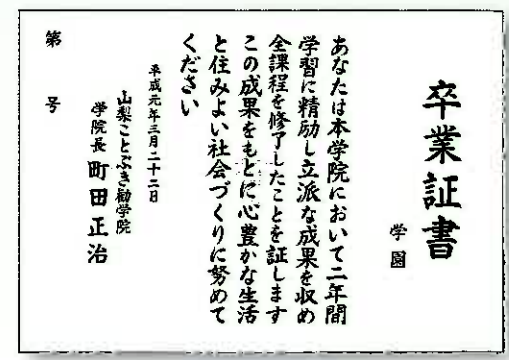 卒業証書
学園
あなたは本学院において二年間
学習に精励し立派な成果を収め
全課程を修了したことを証します
この成果をもとに心豊かな生活
と住みよい社会づくりに努めて
ください
平成元年三月二十二日
山梨ことぶき勧学院
学院長 町田正治
第 号